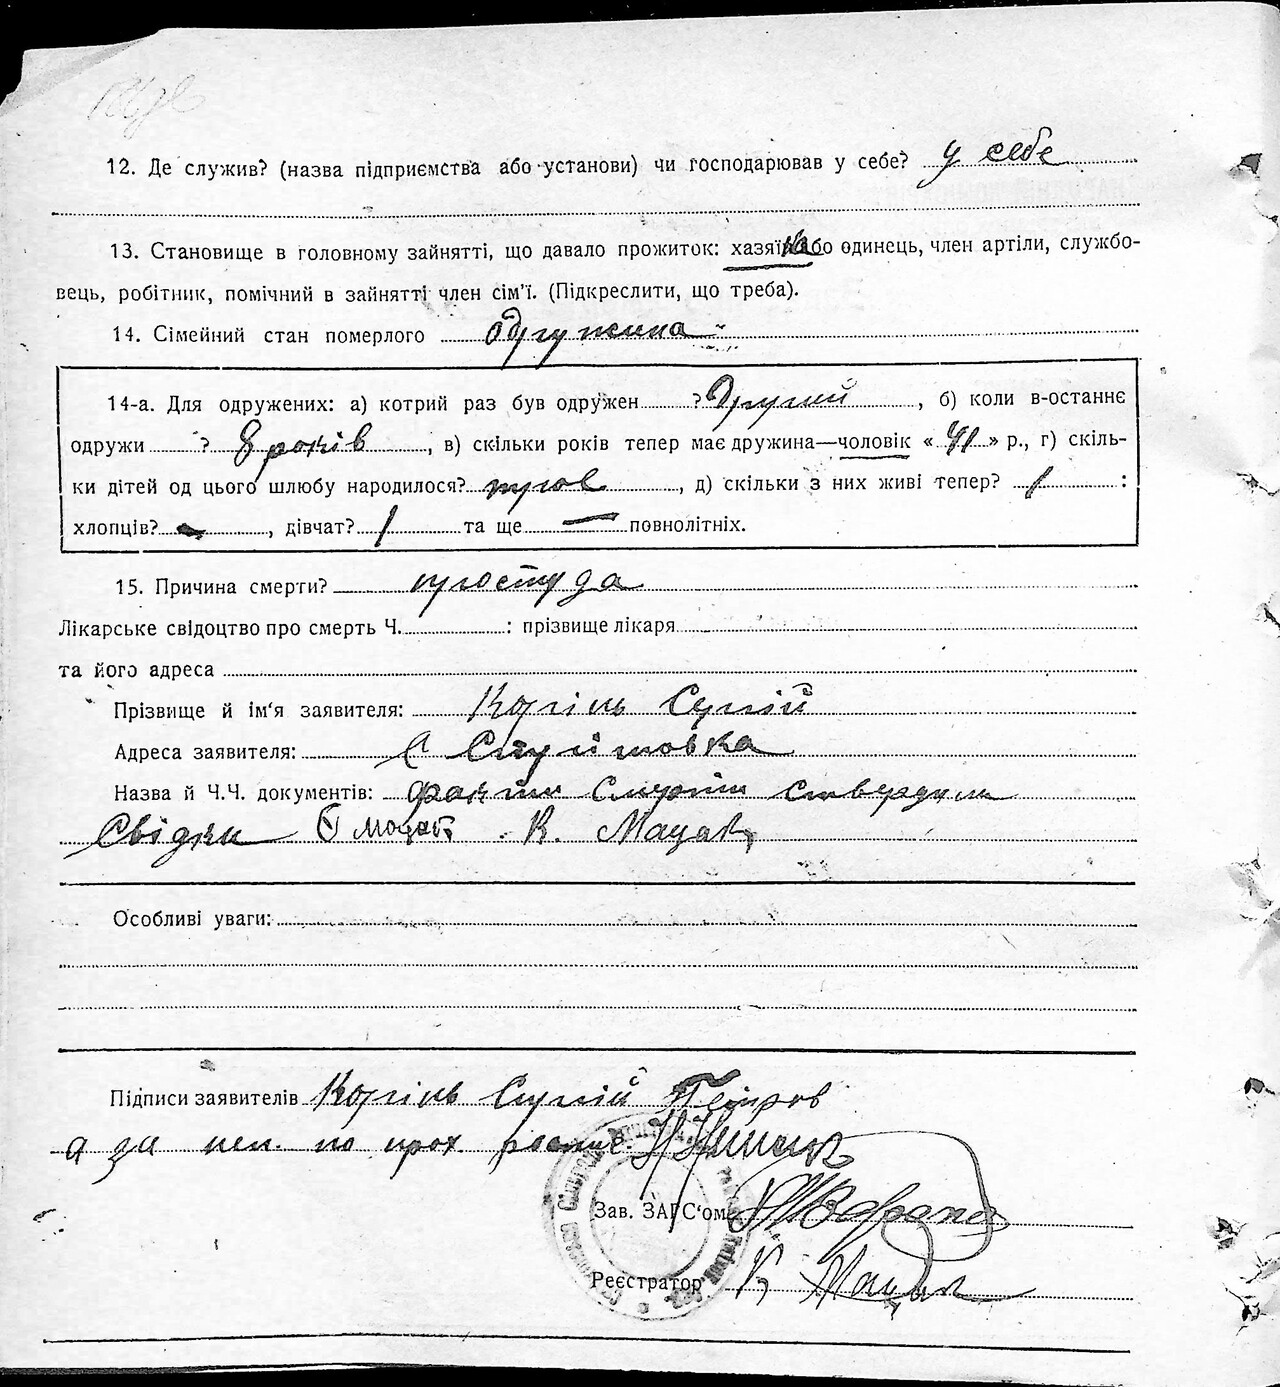 12. Де служив? (назва підприємства або установи) чи господарював у себе? у себе
13. Становище в головному зайнятті, що давало прожиток: хазяїн або одинець, член артіли, службо-
вець, робітник, помічний в зайнятті член сім'ї. (Підкреслити, що треба).
14. Сімейний стан померлого одружина
14-а. Для одружених: а) котрий раз був одружен ? Другий, б) коли в-останнє
одружи ? 8 років, в) скільки років тепер має дружина—чоловік « 41 » р., г) скіль-
ки дітей од цього шлюбу народилося?, д) скільки з них живі тепер? 1 :
хлопців? -, дівчат? 1 та ще — повнолітніх.
15. Причина смерти? простуда
Лікарське свідоцтво про смерть Ч. : прізвище лікаря
та його адреса
Прізвище й ім'я заявителя: Корінь Сергій
Адреса заявителя: с
Назва й Ч.Ч. документів: факти смерти ствердили
Свідки К. Мацак
Особливі уваги:
Підписи заявителів Корінь Сергій Петров
а за неп. по прох. роспис.
Зав. ЗАГС'ом
Реєстратор К Мацак